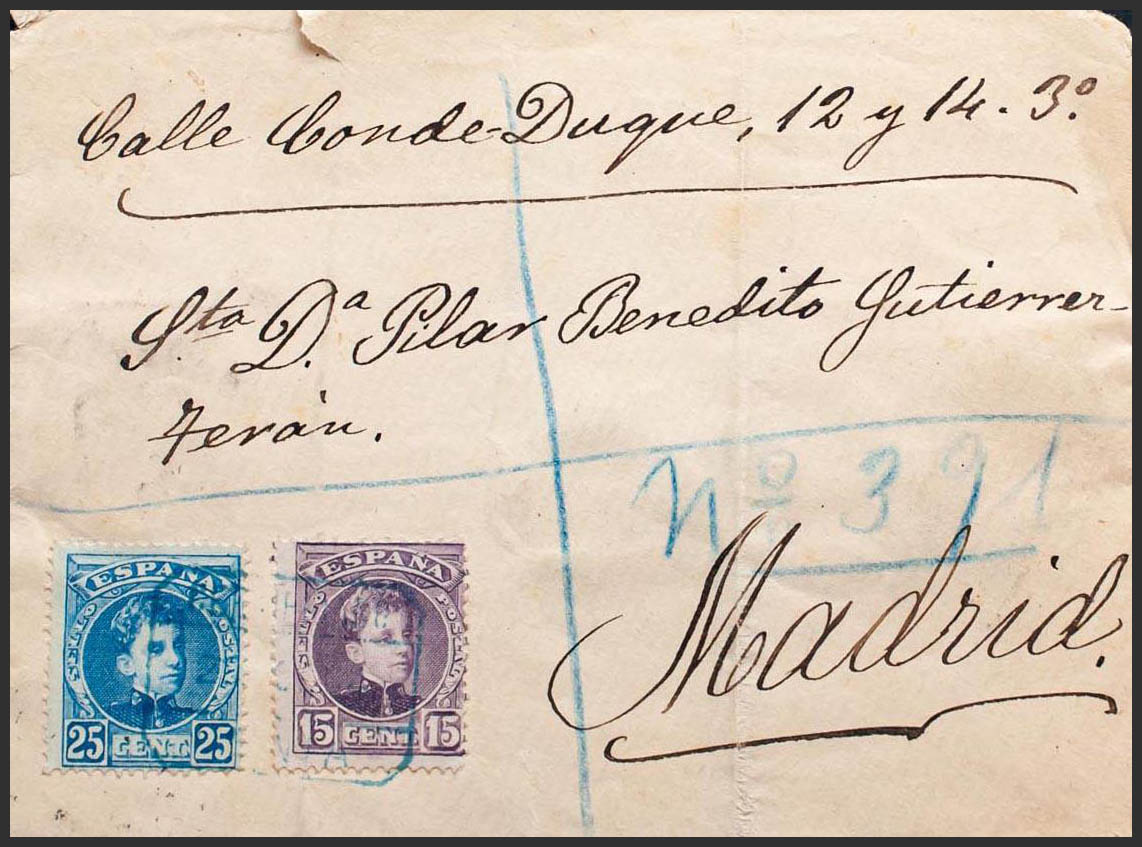 Calle Conde-Duque, 12 y 14. 3º
Sta D.ª Pilar Benedito Gutierrez-
Terán.
Nº 391
Madrid.
ESPAÑA
SELLO POSTAL
25 CENT 25
ESPAÑA
SELLO POSTAL
15 CENT 15